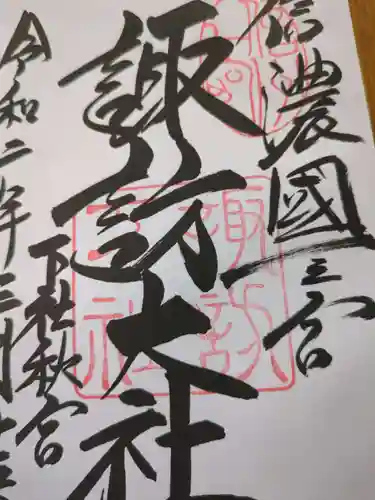 信濃國一之宮
諏訪大社
下社秋宮
令和二年三月十